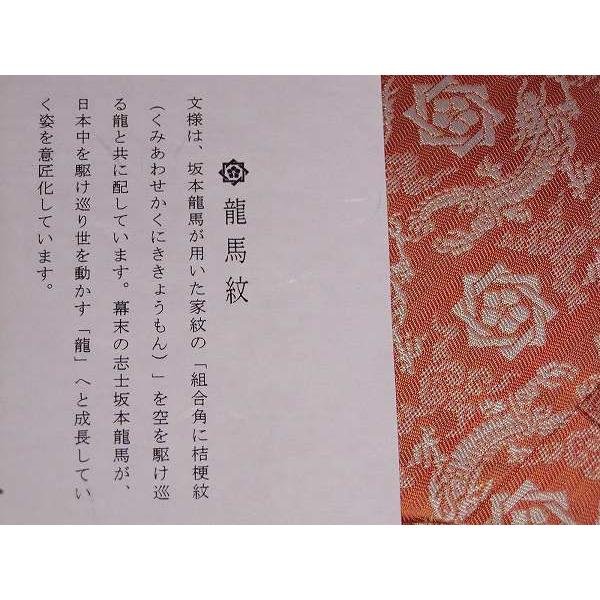 龍馬紋
文様は、坂本龍馬が用いた家紋の「組合角に桔梗紋
(くみあわせかくにききょうもん)」を空を駆け巡
る龍と共に配しています。幕末の志士坂本龍馬が、
日本中を駆け巡り世を動かす「龍」へと成長してい
く姿を意匠化しています。